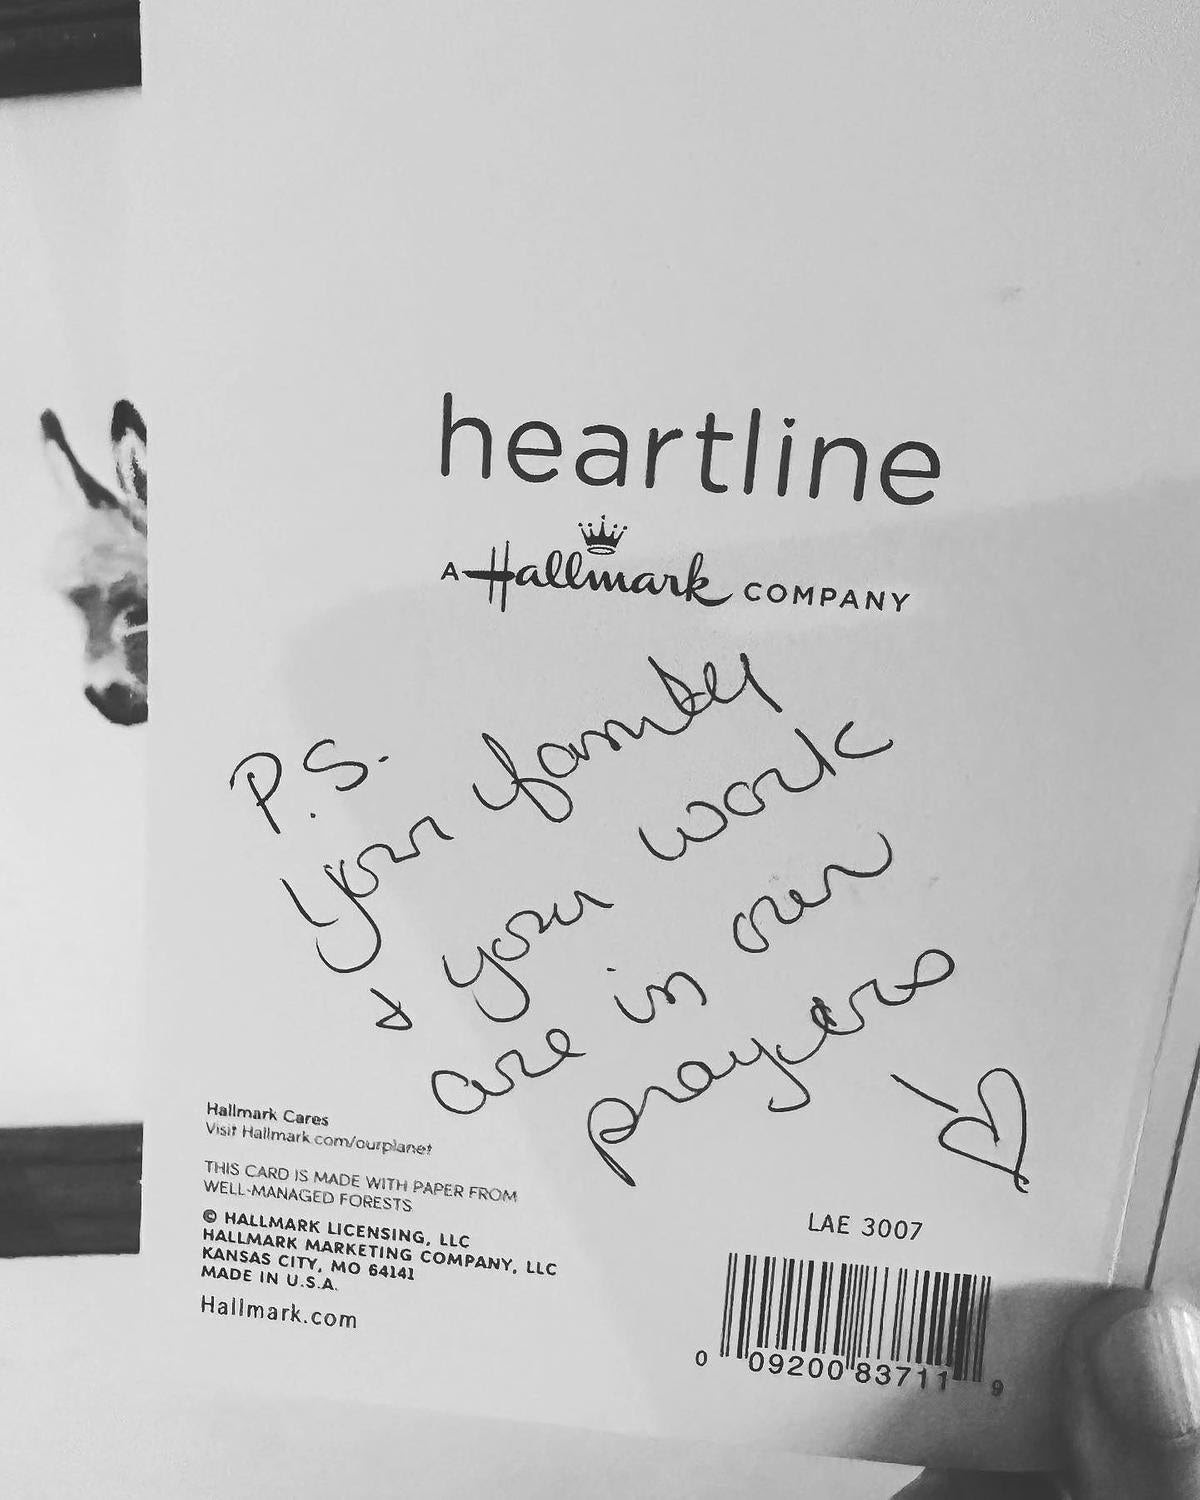 heartline
A Hallmark COMPANY
P.S.
Your family
& your work
are in our
prayers
Hallmark Cares
Visit Hallmark.com/ourplanet
THIS CARD IS MADE WITH PAPER FROM
WELL-MANAGED FORESTS
© HALLMARK LICENSING, LLC
HALLMARK MARKETING COMPANY, LLC
KANSAS CITY, MO 64141
MADE IN U.S.A.
Hallmark.com
LAE 3007
0 09200 83711 9